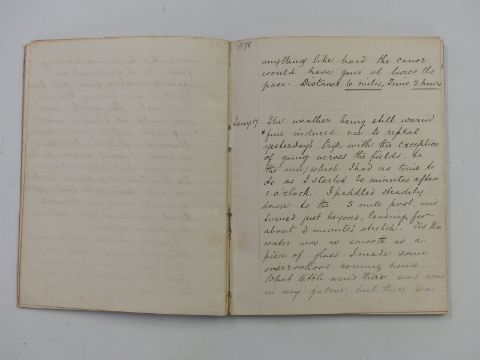 1878
anything like hard the canoe
would have gone at twice the
pace. Distance 6 miles, Time 2 hours
Jany 17. The weather being still warm
& fine induced me to repeat
yesterday's trip, with the exception
of going across the fields to
the inn, which I had no time to
do as I started 20 minutes after
1 o'clock. I paddled steadily
down to the 3 mile post, and
turned just beyond, landing for
about 3 minutes stretch. As the
water was as smooth as a
piece of glass I made some
observations coming home.
What little wind there was was
in my favour, but there was